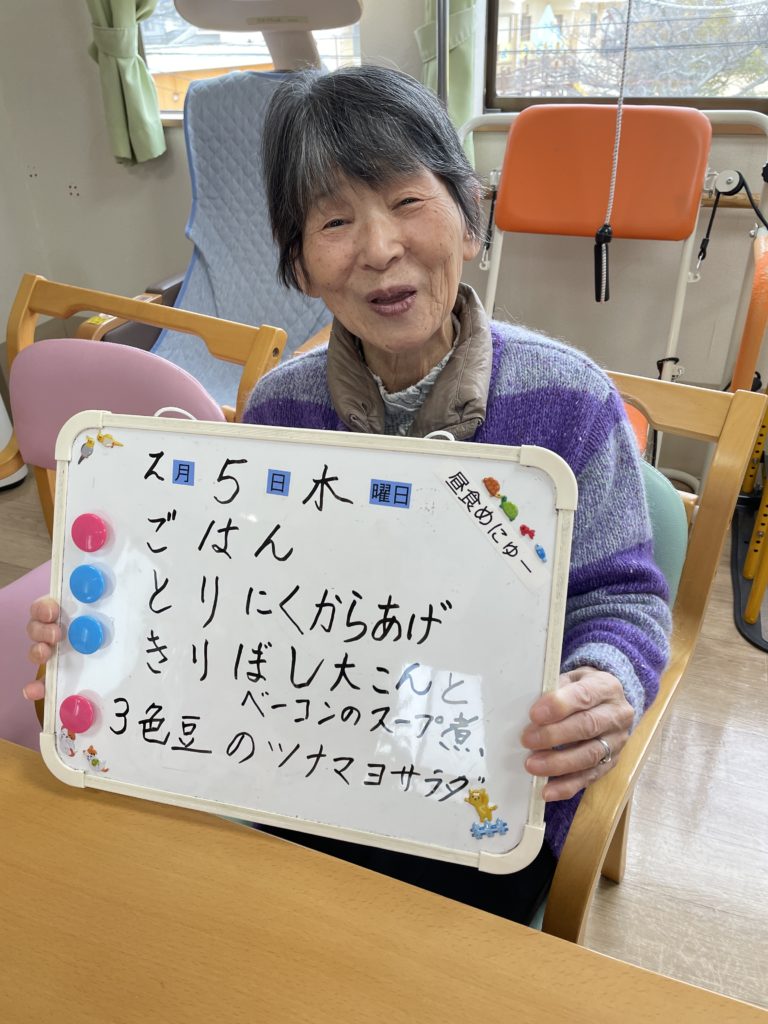 2月5日水曜日
昼食めにゅー
ごはん
とりにくからあげ
きりぼし大こんと
ベーコンのスープ煮、
3色豆のツナマヨサラダ